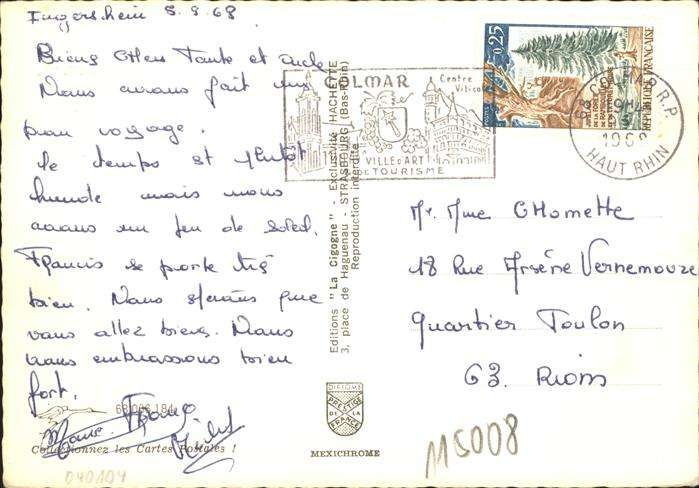 Ingersheim 8.9.68
Biens Chers Tante et oncle
Nous avons fait un
beau voyage.
le temps est plutôt
humide mais nous
avons un peu de soleil.
Francis se porte très
bien. Nous espérons que
vous allez biens. Nous
vous embrassons bien
fort.
68 066 184
Collectionnez les Cartes Postales !
040104
Editions "La Cigogne" - Exclusivité HACHETTE
3, place de Haguenau - STRASBOURG (Bas-Rhin)
Reproduction interdite
COLMAR
Centre
VILLE D'ART
DE TOURISME
0,25
POSTES
REPUBLIQUE FRANÇAISE
68 COLMAR R.P.
1968
HAUT RHIN
Mr. Mme CHomette
18 Rue Arsène Vernemouze
Quartier Toulon
63. Riom
DIPLOME
PRESTIGE
DE LA
FRANCE
MEXICHROME
115008